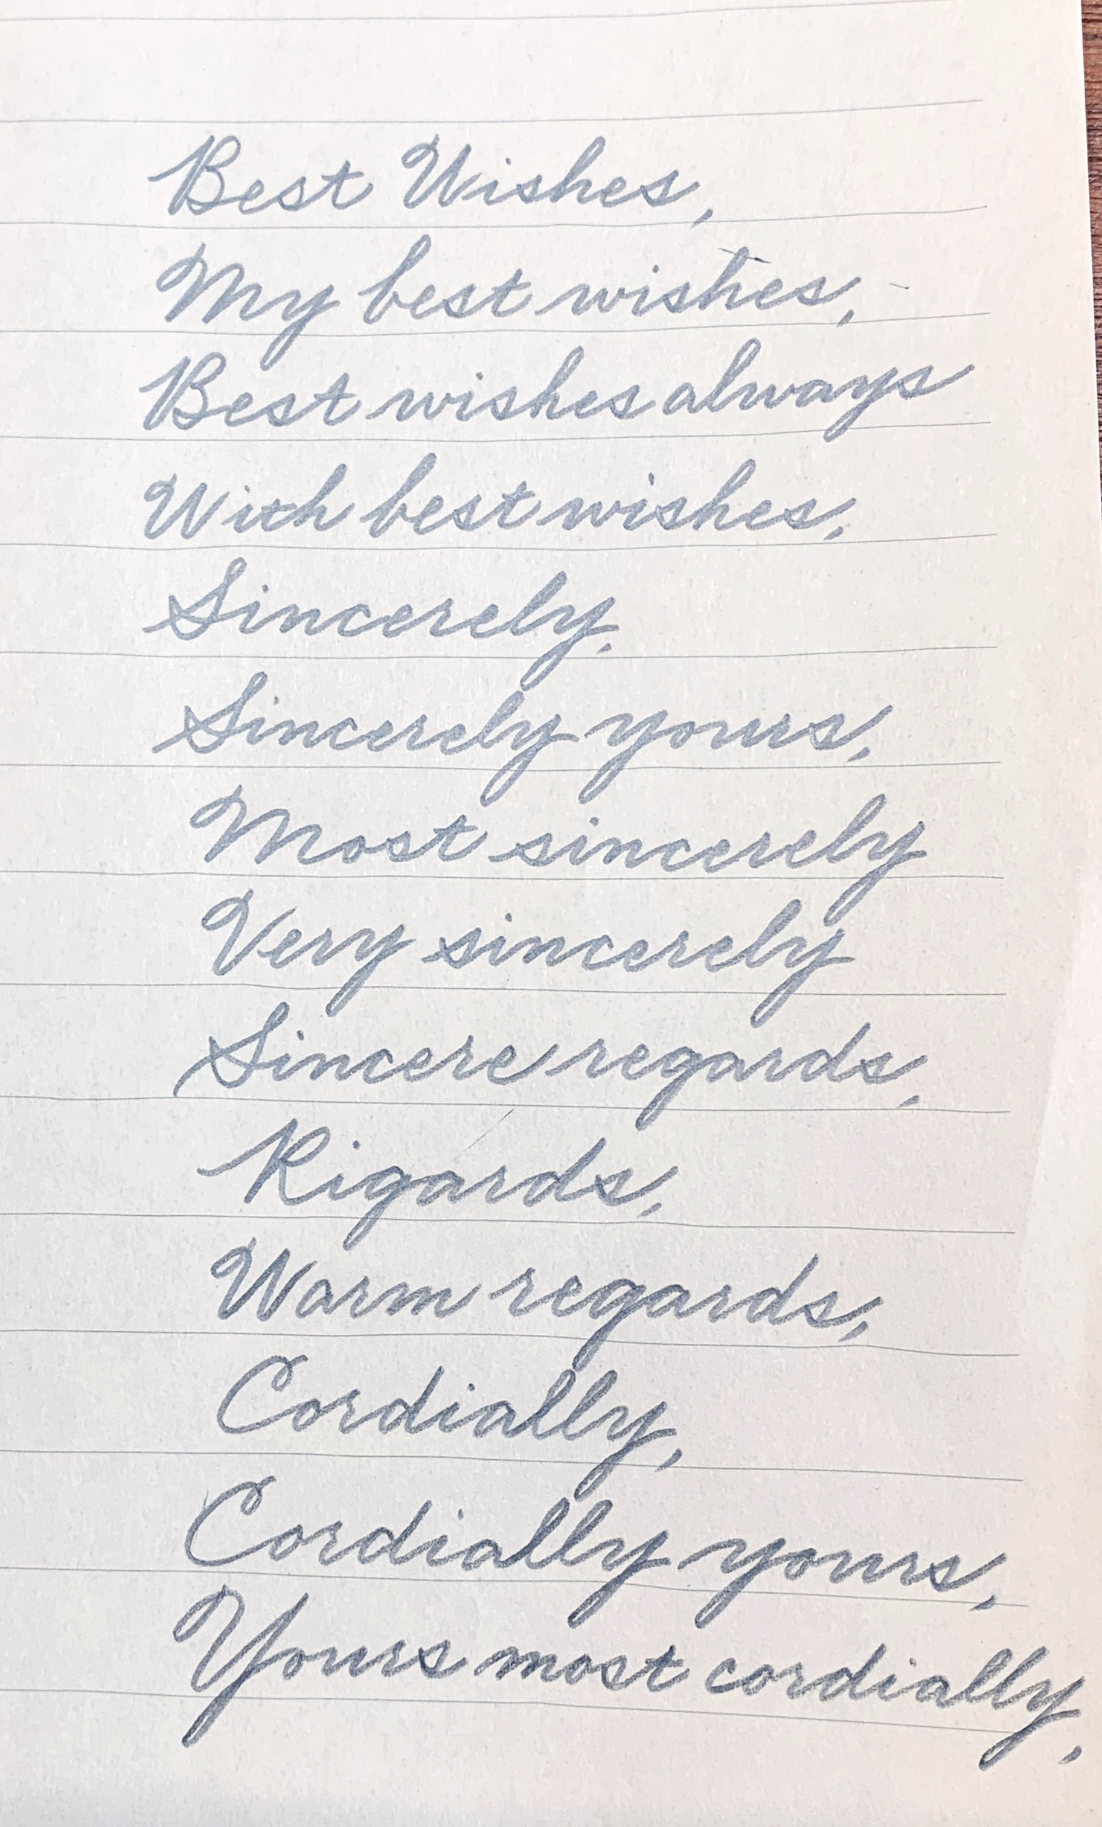 Best Wishes,
My best wishes,
Best wishes always
With best wishes,
Sincerely,
Sincerely yours,
Most sincerely
Very sincerely
Sincere regards,
Rigards,
Warm regards,
Cordially,
Cordially yours,
Yours most cordially,